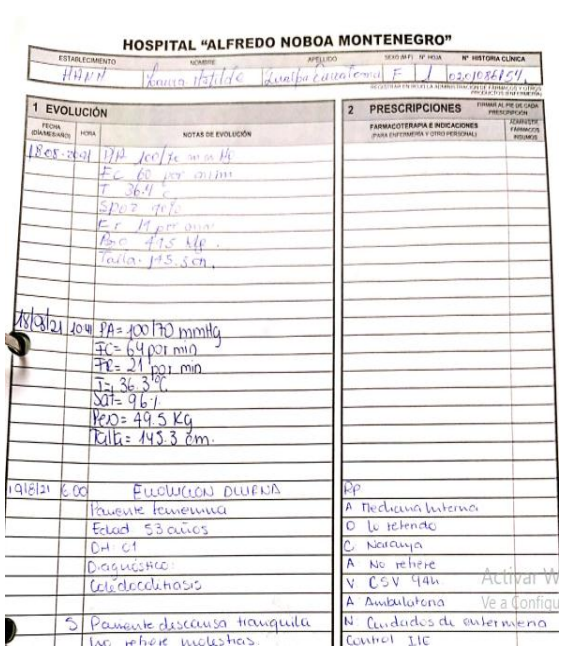 HOSPITAL "ALFREDO NOBOA MONTENEGRO"
ESTABLECIMIENTO NOMBRE APELLIDO SEXO (M-F) N° HOJA N° HISTORIA CLÍNICA
HANM Laura Matilde F 1
1 EVOLUCIÓN
FECHA (DIA/MES/AÑO) HORA NOTAS DE EVOLUCIÓN
P/A 100/70 mm Hg
FC 60 por min
T 36.4 °C
SPO2 90%
Fr por min
Talla: 145.3 cm.
18/08/21 PA= 100/70 mmHg
FC= 64 por min
FR= 21 por min
T= 36.3°C
Sat= 96%
Peso= 49.5 Kg
Talla= 145.3 cm.
19/8/21 6:00 EVOLUCION DIURNA
Paciente femenina
Edad 53 años
DH: C1
Diagnóstico:
Coledocolitiasis
S Paciente descansa tranquila
no refiere molestias.
2 PRESCRIPCIONES FIRMAR AL PIE DE CADA PRESCRIPCIÓN
FARMACOTERAPIA E INDICACIONES
(PARA ENFERMERÍA Y OTRO PERSONAL)
ADMINISTR. FÁRMACOS INSUMOS
RP
A Medicina Interna
O lo referido
C Naranja
A No refiere
V CSV 4h
A Ambulatoria
N Cuidados de enfermería
Control I/E
Activar W
Ve a Configu